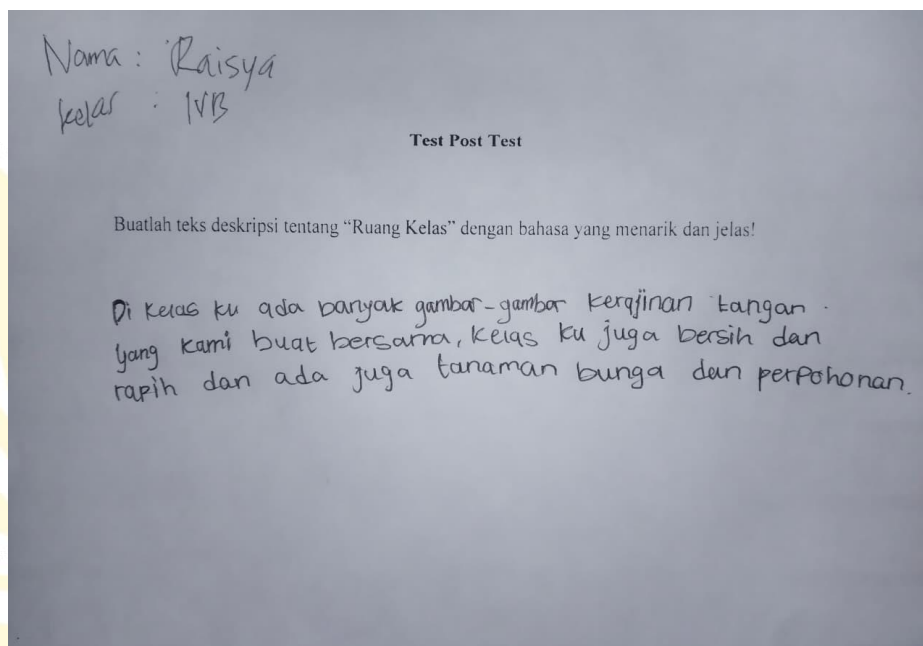 Nama : Raisya
Kelas : IVB
Test Post Test
Buatlah teks deskripsi tentang “Ruang Kelas” dengan bahasa yang menarik dan jelas!
Di Kelas ku ada banyak gambar-gambar kerajinan tangan.
yang kami buat bersama, kelas ku juga bersih dan
rapih dan ada juga tanaman bunga dan perpohonan.